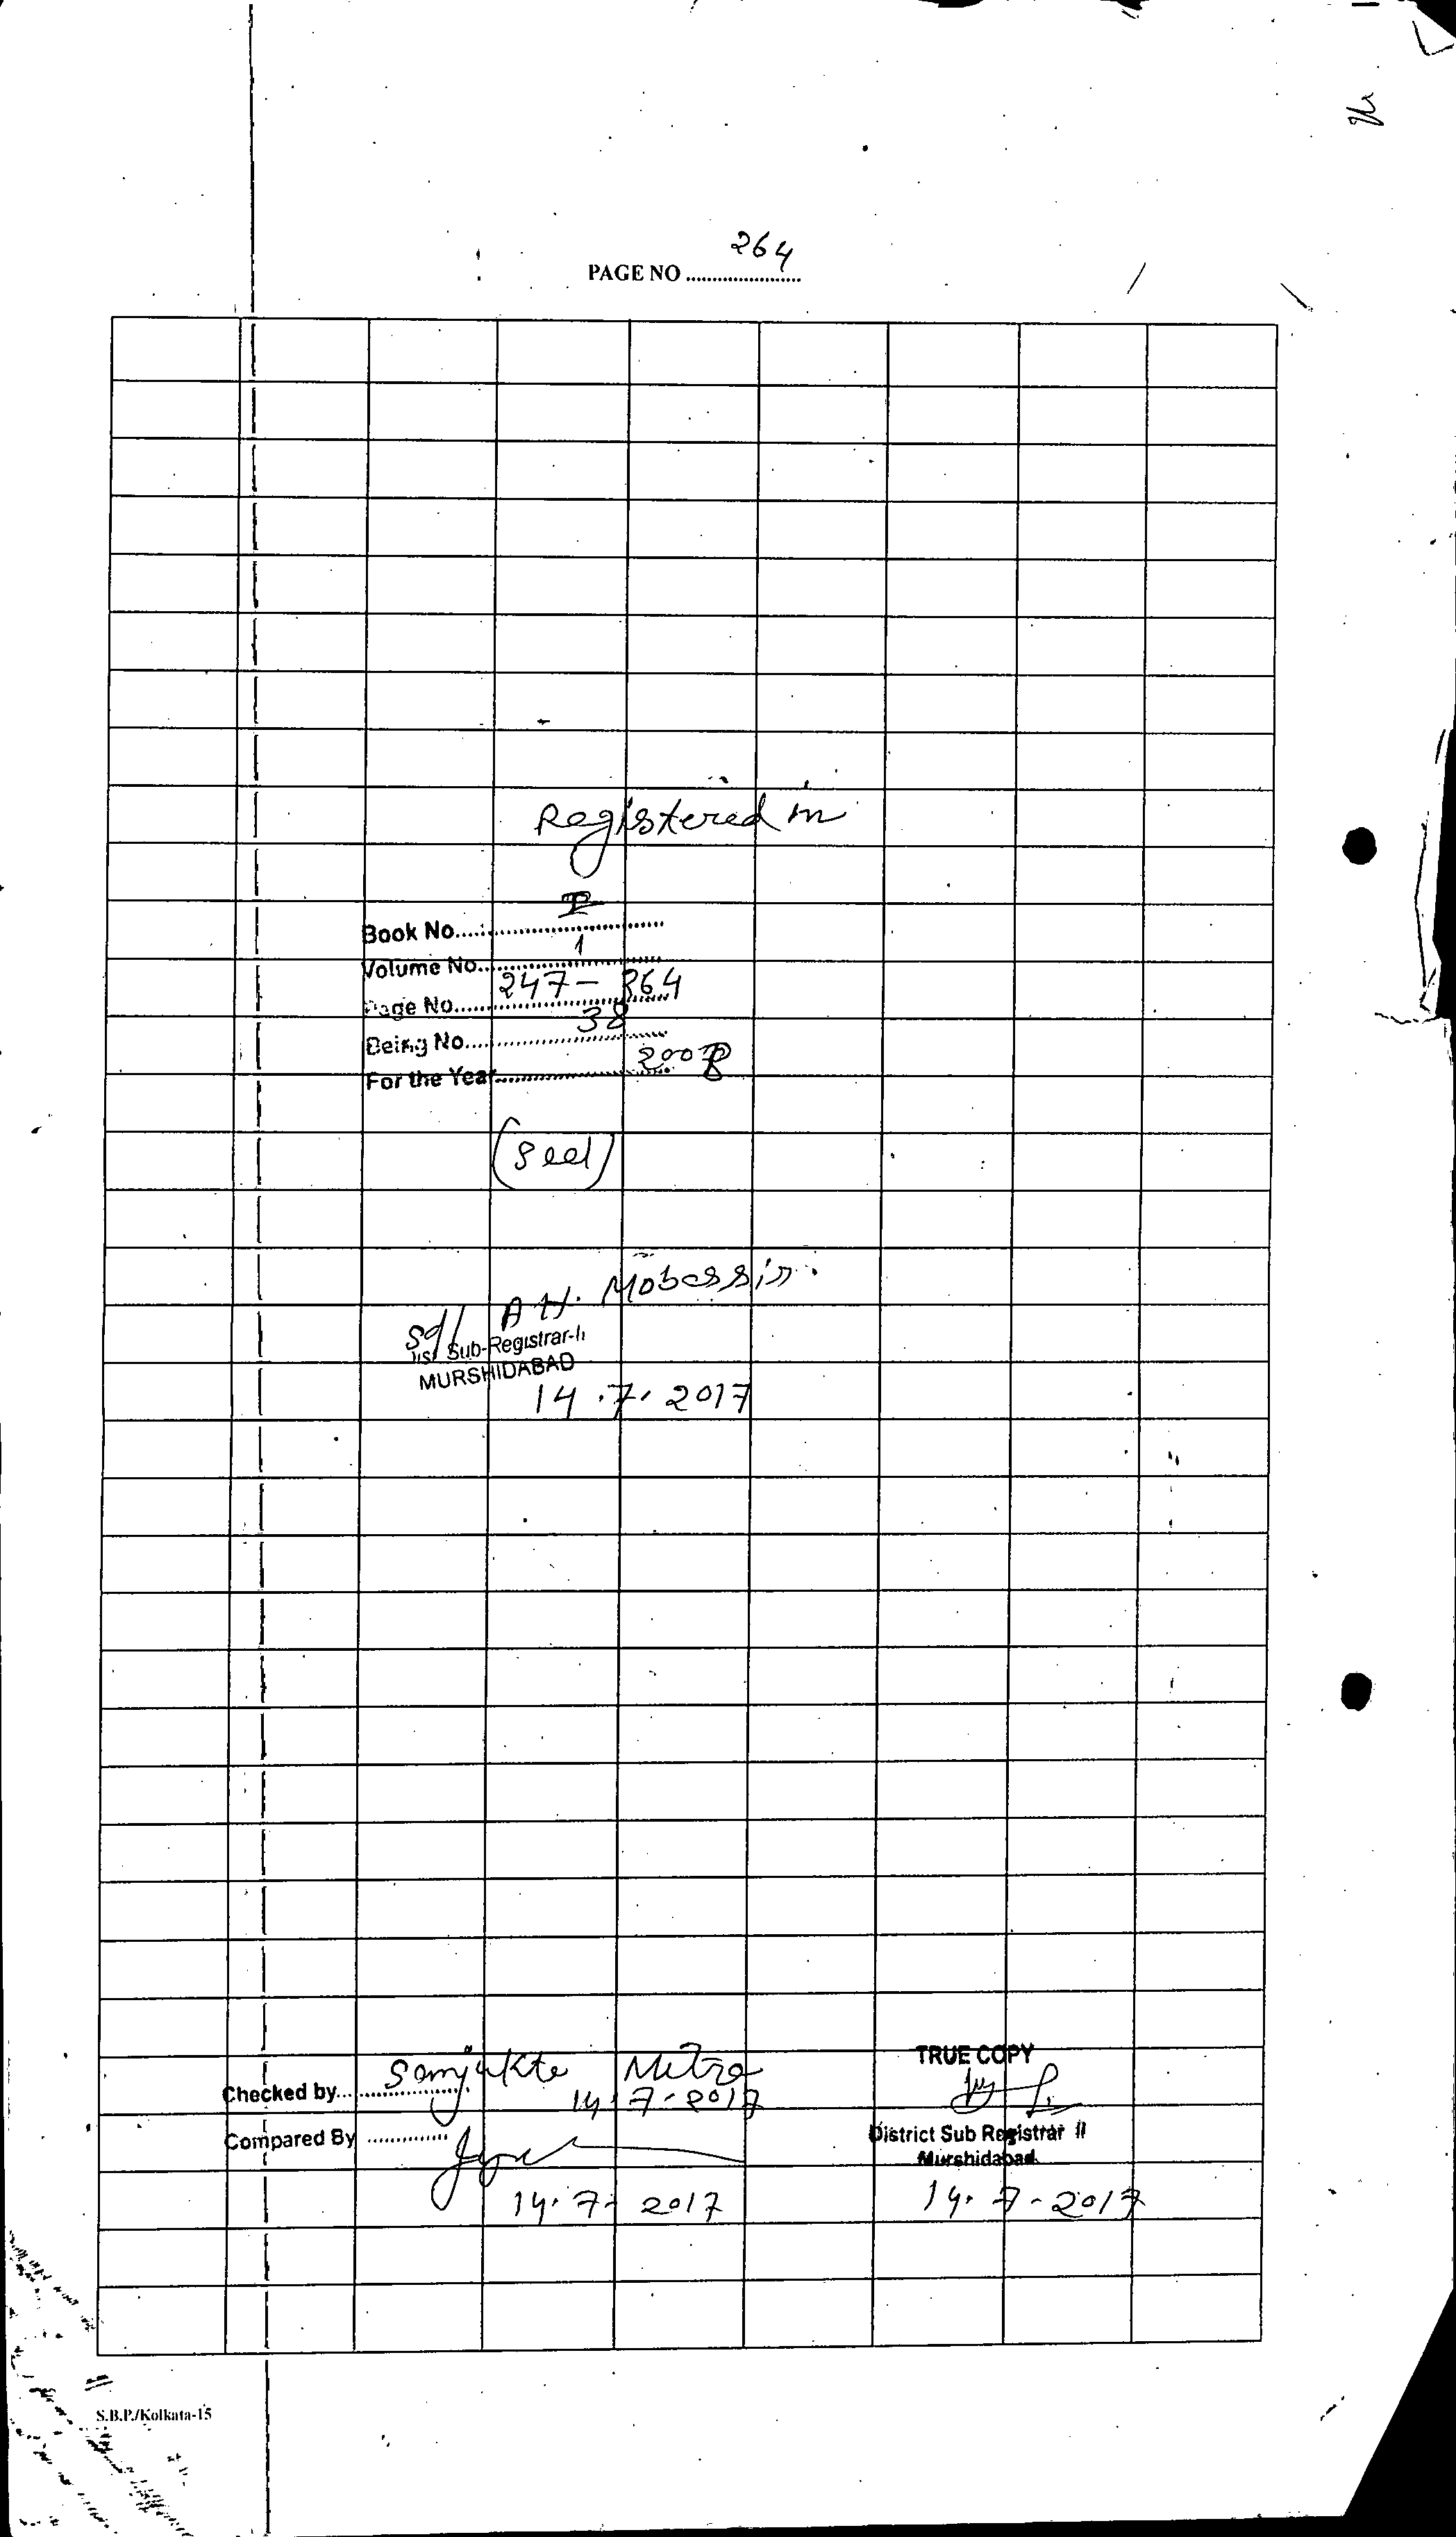 PAGE NO ..................... 264
Registered in
Book No. I
Volume No. 1
Page No. 247 - 264
Being No. 38
For the Year 2008
(Seel)
Sd/ A H. Mobassir.
Dist Sub-Registrar-II
MURSHIDABAD
14.7.2017
TRUE COPY
Checked by Sanjukta Mitra
14.7-2017
Compared By
District Sub Registrar II
Murshidabad
14.7-2017
14.7-2017
S.B.P./Kolkata-15